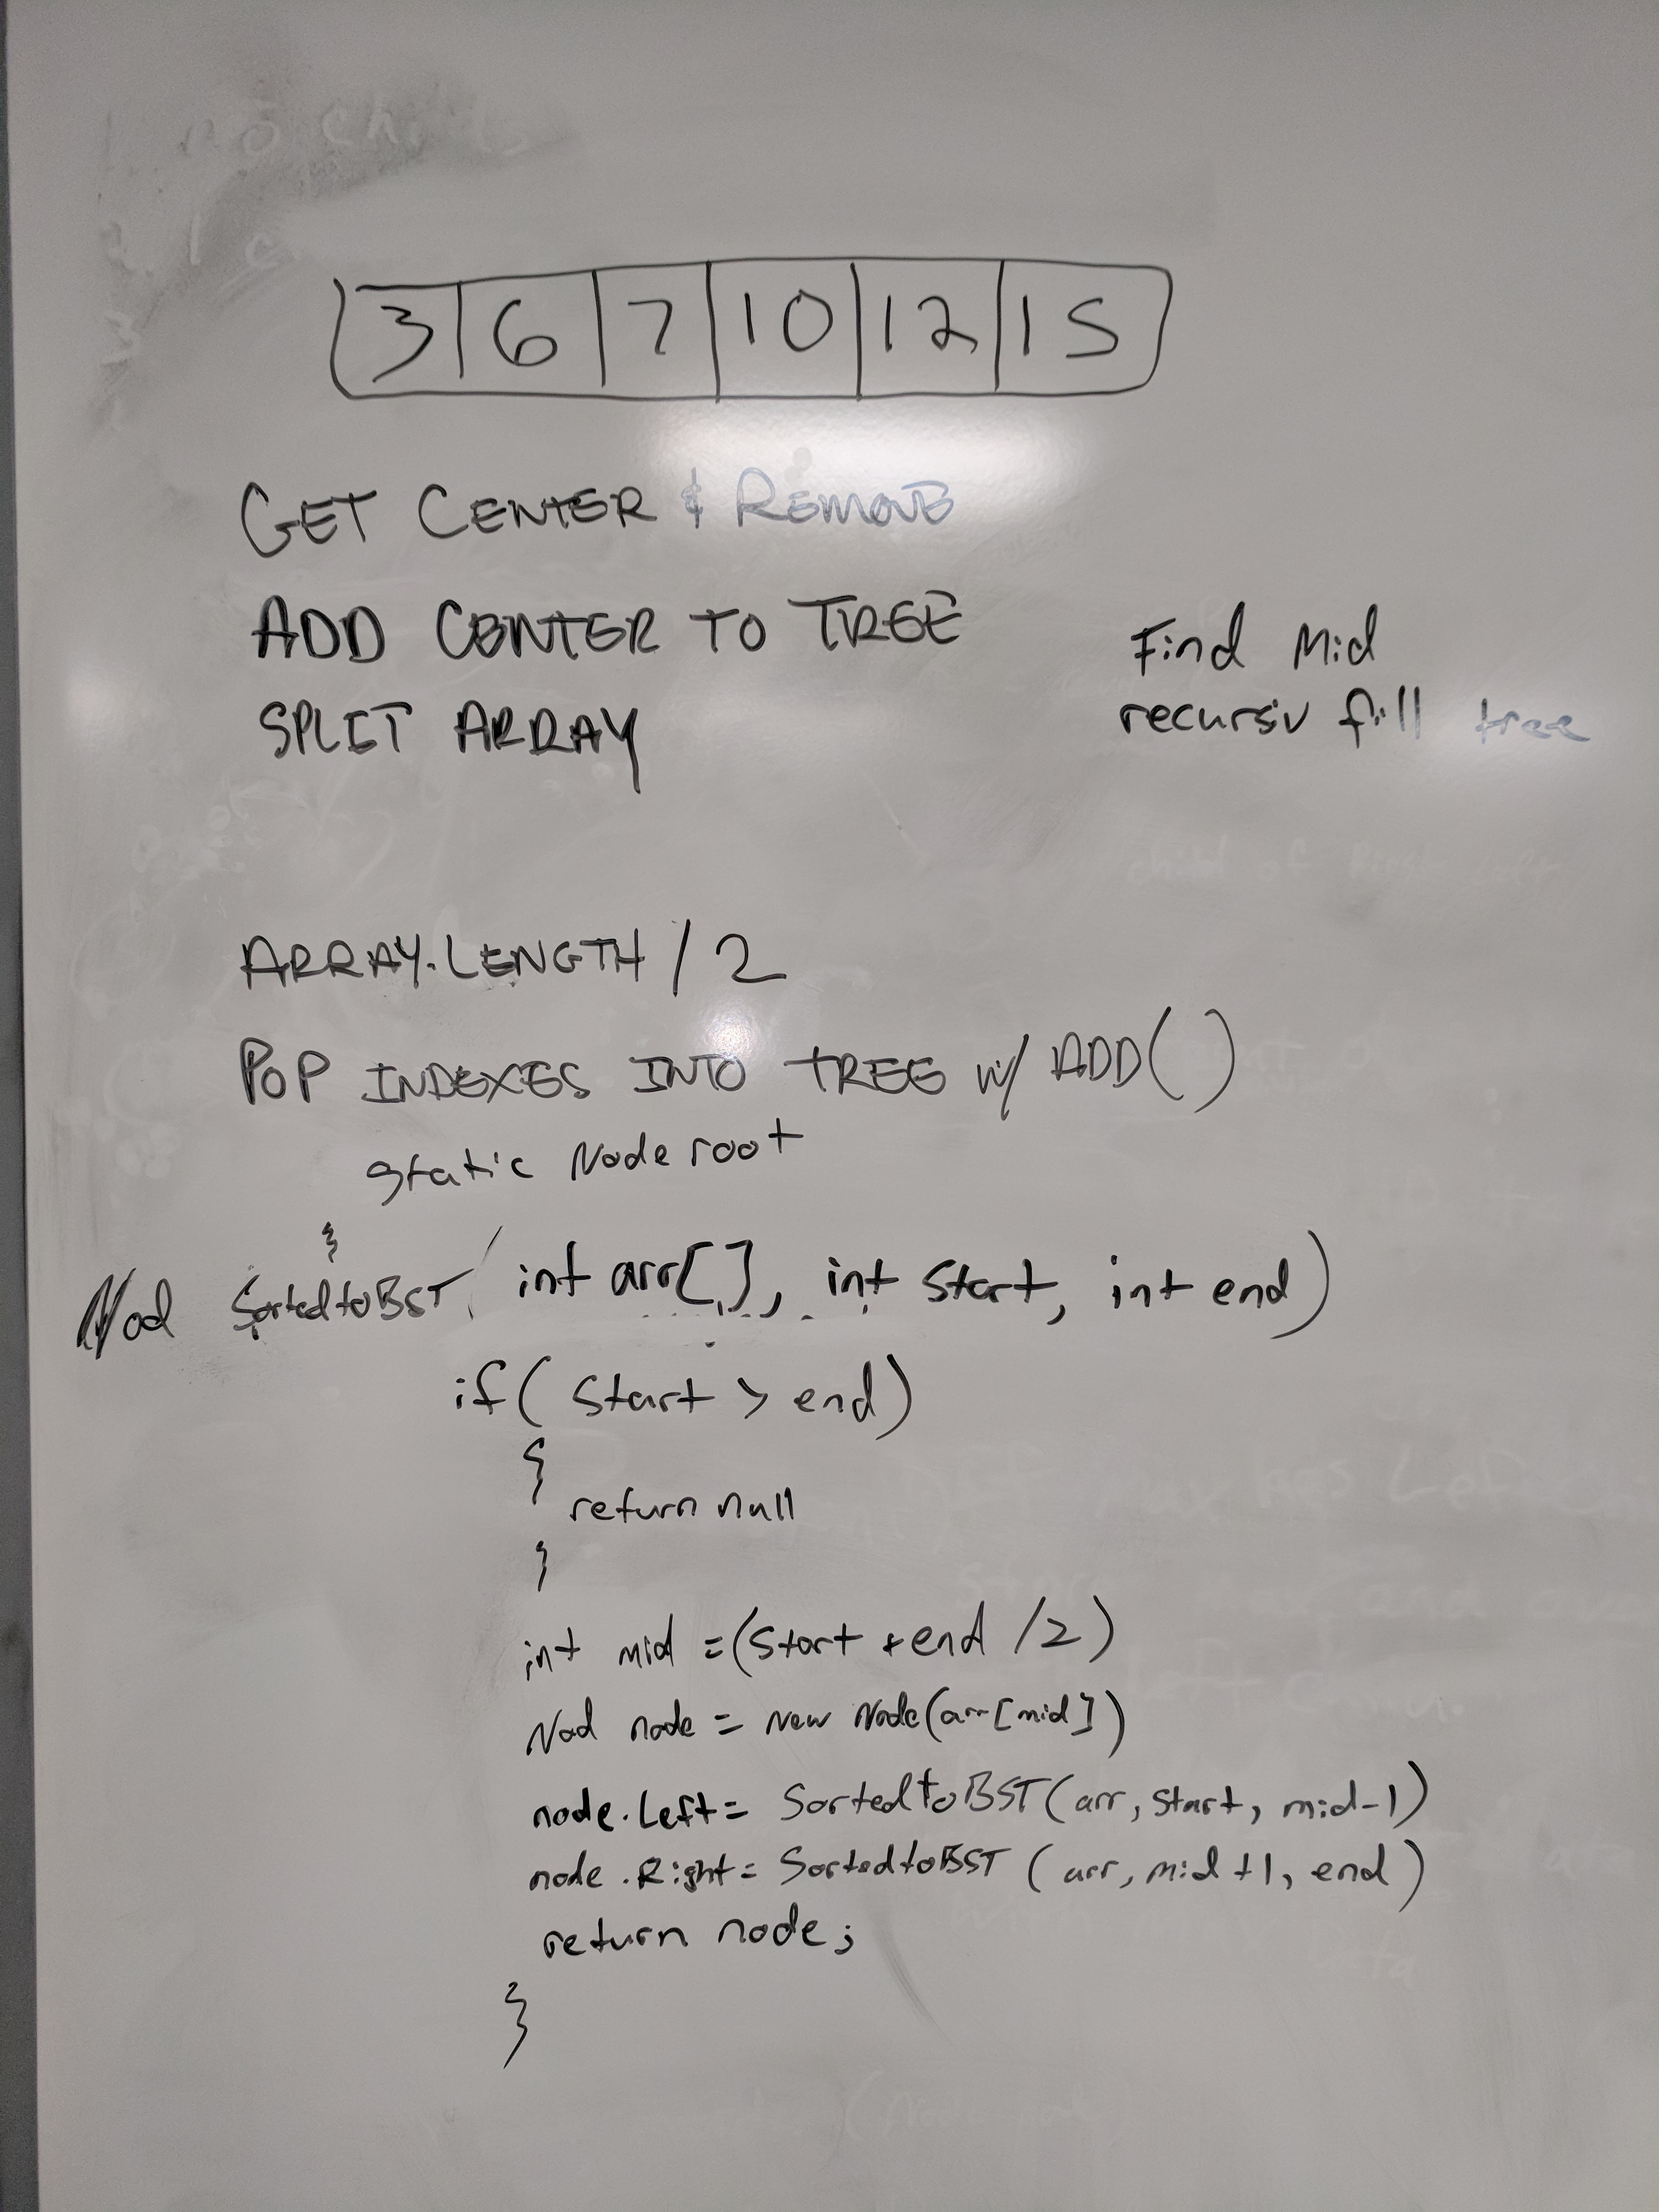 3 6 7 10 12 15
GET CENTER & REMOVE
ADD CENTER TO TREE
SPLIT ARRAY
Find Mid
recursiv fill tree
ARRAY.LENGTH / 2
POP INDEXES INTO TREE W/ ADD()
static Node root
}
Nod SortedtoBST( int arr[], int start, int end)
if( start > end)
{
return null
}
int mid =(start + end /2)
Nod node = new Node(arr[mid])
node.Left= SortedtoBST(arr, start, mid-1)
node.Right= SortedtoBST (arr, mid+1, end)
return node;
}